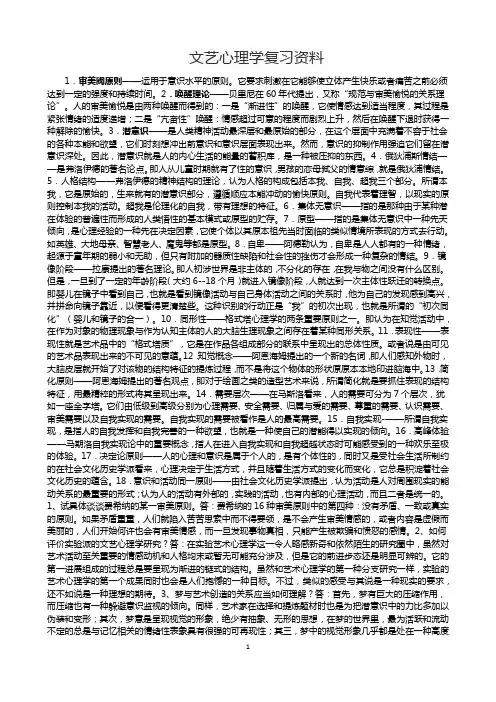 文艺心理学复习资料
1．审美阀原则——运用于意识水平的原则。它要求刺激在它能够使立体产生快乐或者痛苦之前必须
达到一定的强度和持续时间。2．唤醒理论——贝里尼在60年代提出，又称“规范与审美愉悦的关系理
论”。人的审美愉悦是由两种唤醒而得到的：一是“渐进性”的唤醒，它使情感达到适当程度，其过程是
紧张情绪的适度递增；二是“亢奋性”唤醒：情感超过可意的程度而剧烈上升，然后在唤醒下退时获得一
种解除的愉快。3．潜意识——是人类精神活动最深层和最原始的部分，在这个层面中充满着不容于社会
的各种本能和欲望，它们时刻想冲出前意识和意识层面表现出来。然而，意识的抑制作用强迫它们留在潜
意识深处。因此，潜意识就是人的内心生活的能量的蓄积库，是一种被压抑的东西。4．俄狄浦斯情结—
—是弗洛伊德的著名论点。即人从儿童时期就有了性的意识,男孩的恋母弑父的情意综,就是俄狄浦情结。
5．人格结构——弗洛伊德的精神结构的理论，认为人格的构成包括本我、自我、超我三个部分。所谓本
我，它是原始的，生来就有的潜意识部分，遵循顺应本能冲动的愉快原则。自我代表着理智，以现实的原
则控制本我的活动。超我是伦理化的自我，带有理想的特征。6．集体无意识——指的是那种由于某种潜
在体验的普遍性而形成的人类悟性的基本模式或原型的贮存。7．原型——指的是集体无意识中一种先天
倾向，是心理经验的一种先在决定因素，它使个体以其原本祖先当时面临的类似情境所表现的方式去行动。
如英雄、大地母亲、智慧老人、魔鬼等都是原型。8．自卑——阿德勒认为，自卑是人人都有的一种情绪，
起源于童年期的弱小和无助，但只有附加的器质性缺陷和社会性的挫伤才会形成一种复杂的情结。9．镜
像阶段——拉康提出的著名理论。即人初涉世界是非主体的,不分化的存在,在我与物之间没有什么区别。
但是，一旦到了一定的年龄阶段(大约6--18个月)就进入镜像阶段，人就达到一次主体性跃迁的转换点。
即婴儿在镜子中看到自己，也就是看到镜像活动与自己身体活动之间的关系时，他为自己的发现感到高兴，
并拼命向镜子靠近，以便看得更清楚些。这种识别的行动正是“我”的初次出现，也就是所谓的“初次同
化”（婴儿和镜子的合一）。10．同形性——格式塔心理学的两条重要原则之一。即认为在知觉活动中，
在作为对象的物理现象与作为认知主体的人的大脑生理现象之间存在着某种同形关系。11．表现性——表
现性就是艺术品中的“格式塔质”，它是在作品各组成部分的联系中呈现出的总体性质。或者说是由可见
的艺术品表现出来的不可见的意蕴。12 知觉概念——阿恩海姆提出的一个新的名词,即人们感知外物时，
大脑皮层就开始了对该物的结构特征的提炼过程,而不是将这个物体的形状原原本本地印进脑海中。13 简
化原则——阿恩海姆提出的著名观点，即对于绘画之类的造型艺术来说，所谓简化就是要抓住表现的结构
特征，用最精粹的形式将其呈现出来。14．需要层次——在马斯洛看来，人的需要可分为7个层次，犹
如一座金字塔。它们由低级到高级分别为心理需要、安全需要、归属与爱的需要、尊重的需要、认识需要、
审美需要以及自我实现的需要。自我实现的需要被看作是人的最高需要。15．自我实现-——所谓自我实
现，是指人的自我发挥和自我完善的一种欲望，也就是一种使自己的潜能得以实现的倾向。16．高峰体验
——马期洛自我实现论中的重要概念，指人在进入自我实现和自我超越状态时可能感受到的一种欢乐至极
的体验。17．决定论原则——人的心理和意识是属于个人的，是有个体性的，同时又是受社会生活所制约
的在社会文化历史学派看来，心理决定于生活方式，并且随着生活方式的变化而变化，它总是积淀着社会
文化历史的蕴含。18．意识和活动同一原则——由社会文化历史学派提出，认为活动是人对周围现实的能
动关系的最重要的形式；认为人的活动有外部的，实践的活动，也有内部的心理活动，而且二者是统一的。
1、试具体谈谈费希纳的某一审美原则。答：费希纳的16种审美原则中的第四种：没有矛盾、一致或真实
的原则。如果矛盾重重，人们就陷入苦苦思索中而不得要领，是不会产生审美情感的，或者内容是虚假而
美丽的，人们开始何许也会有审美情感，而一旦发现事物真相，只能产生被欺骗和愤怒的感情。2、如何
评价实验派的文艺心理学研究？答：在实验艺术心理学这一令人略感新奇和依然陌生的研究圈中，虽然对
艺术活动至关重要的情感动机和人格均末或暂无可能充分涉及，但是它的前进步态还是明显可辨的。它的
第一进展组成的过程总是要呈现为渐进的链式的结构。虽然和艺术心理学的第一种分支研究一样，实验的
艺术心理学的第一个成果同时也会是人们抱憾的一种目标。不过，类似的感受与其说是一种现实的要求，
还不如说是一种理想的期待。3、梦与艺术创造的关系应当如何理解？答：首先，梦有巨大的压缩作用，
而压缩也有一种躲避意识监视的倾向。同样，艺术家在选择和提炼题材时也是为把潜意识中的力比多加以
伪装和变形；其次，梦意是呈现视觉的形象，绝少有抽象、无形的思想，在梦的世界里，最为活跃和流动
不定的总是与记忆相关的情绪性表象具有很强的可再现性；其三，梦中的视觉形象几乎都是处在一种高度
1